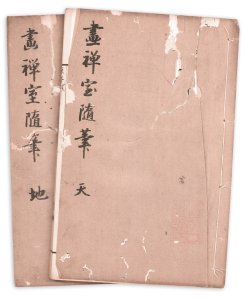 畫禅室隨筆
地
畫禅室隨筆
天